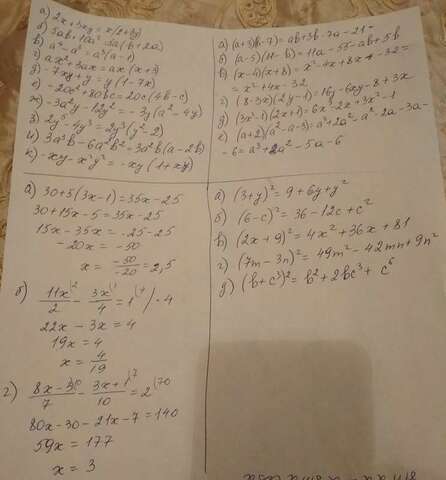 а) 2x + 3xy = x(2+3y)
б) 5ab + 10a² = 5a(b+2a)
в) a⁴ - a³ = a³(a-1)
г) ax² + 3ax = ax(x+3)
д) -7xy + y = y(1-7x)
е) -20a² + 80bc = 20c(4b-c)
ж) -3a²y - 12y² = -3y(a²-4y)
з) 2y⁵ - 4y³ = 2y³(y²-2)
и) 3a³b - 6a²b² = 3a²b(a-2b)
к) -xy - x²y² = -xy(1+xy)
а) (a+3)(b-7) = ab+3b-7a-21
б) (a-5)(11-b) = 11a-55-ab+5b
в) (x-4)(x+8) = x²-4x+8x-32 =
= x²+4x-32
г) (8-3x)(2y-1) = 16y-6xy-8+3x
д) (3x²-1)(2x+1) = 6x³-2x+3x²-1
е) (a+2)(a²-a-3) = a³+2a²-a²-2a-3a-
-6 = a³+a²-5a-6
а) 30+5(3x-1) = 35x-25
30+15x-5 = 35x-25
15x-35x = -25-25
-20x = -50
x = -50/-20 = 2,5
б) 11x/2 - 3x/4 = 1 | · 4
22x - 3x = 4
19x = 4
x = 4/19
г) 8x-3/7 - 3x+1/10 = 2 |70
80x-30-21x-7 = 140
59x = 177
x = 3
а) (3+y)² = 9+6y+y²
б) (6-c)² = 36-12c+c²
в) (2x+9)² = 4x²+36x+81
г) (7m-3n)² = 49m²-42mn+9n²
д) (b+c³)² = b²+2bc³+c⁶